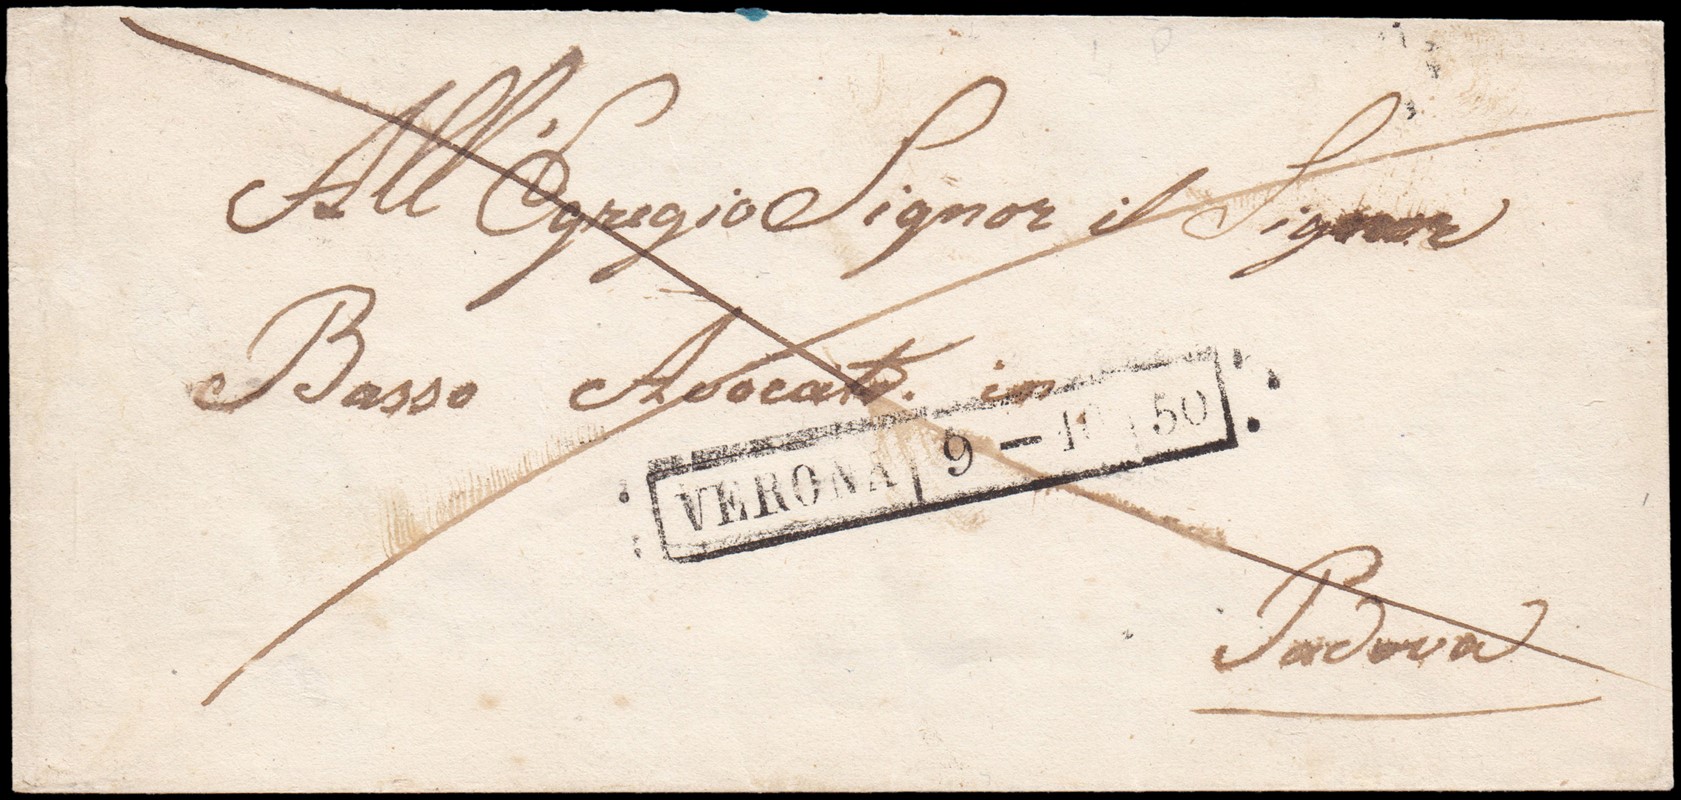 All' Egregio Signor il Signor
Basso Avocato. in
VERONA 9 — 10 50
Padova